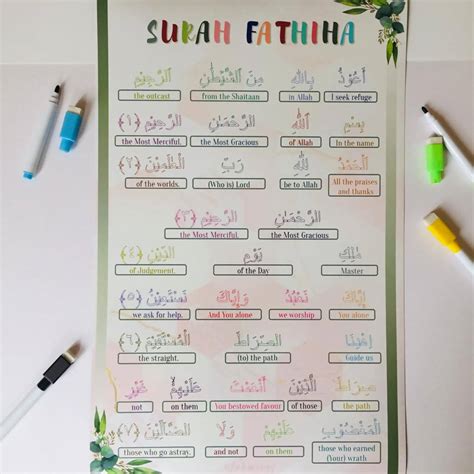 SURAH FATHIHA
أَعُوذُ بِاللَّهِ مِنَ الشَّيْطَٰنِ الرَّجِيمِ
I seek refuge in Allah from the Shaitaan the outcast
بِسْمِ اللَّهِ الرَّحْمَٰنِ الرَّحِيمِ ﴿١﴾
In the name of Allah the Most Gracious the Most Merciful.
الْحَمْدُ لِلَّهِ رَبِّ الْعَٰلَمِينَ ﴿٢﴾
All the praises and thanks be to Allah (Who is) Lord of the worlds.
الرَّحْمَٰنِ الرَّحِيمِ ﴿٣﴾
the Most Gracious the Most Merciful.
مَٰلِكِ يَوْمِ الدِّينِ ﴿٤﴾
Master of the Day of Judgement.
إِيَّاكَ نَعْبُدُ وَإِيَّاكَ نَسْتَعِينُ ﴿٥﴾
You alone we worship And You alone we ask for help.
اهْدِنَا الصِّرَاطَ الْمُسْتَقِيمَ ﴿٦﴾
Guide us (to) the path the straight.
صِرَاطَ الَّذِينَ أَنْعَمْتَ عَلَيْهِمْ غَيْرِ
the path of those You bestowed favour on them not
الْمَغْضُوبِ عَلَيْهِمْ وَلَا الضَّالِّينَ ﴿٧﴾
those who earned (Your) wrath on them and not those who go astray.